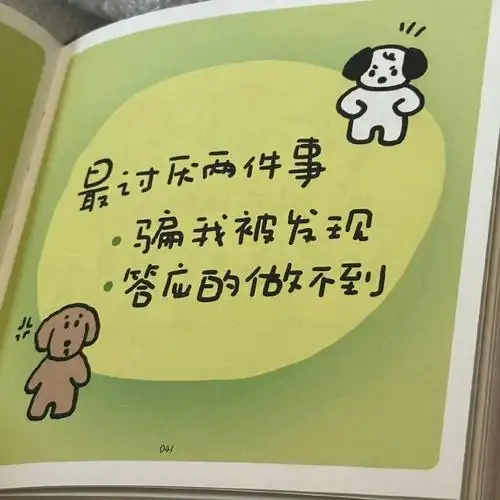 最讨厌两件事
•骗我被发现
•答应的做不到
041